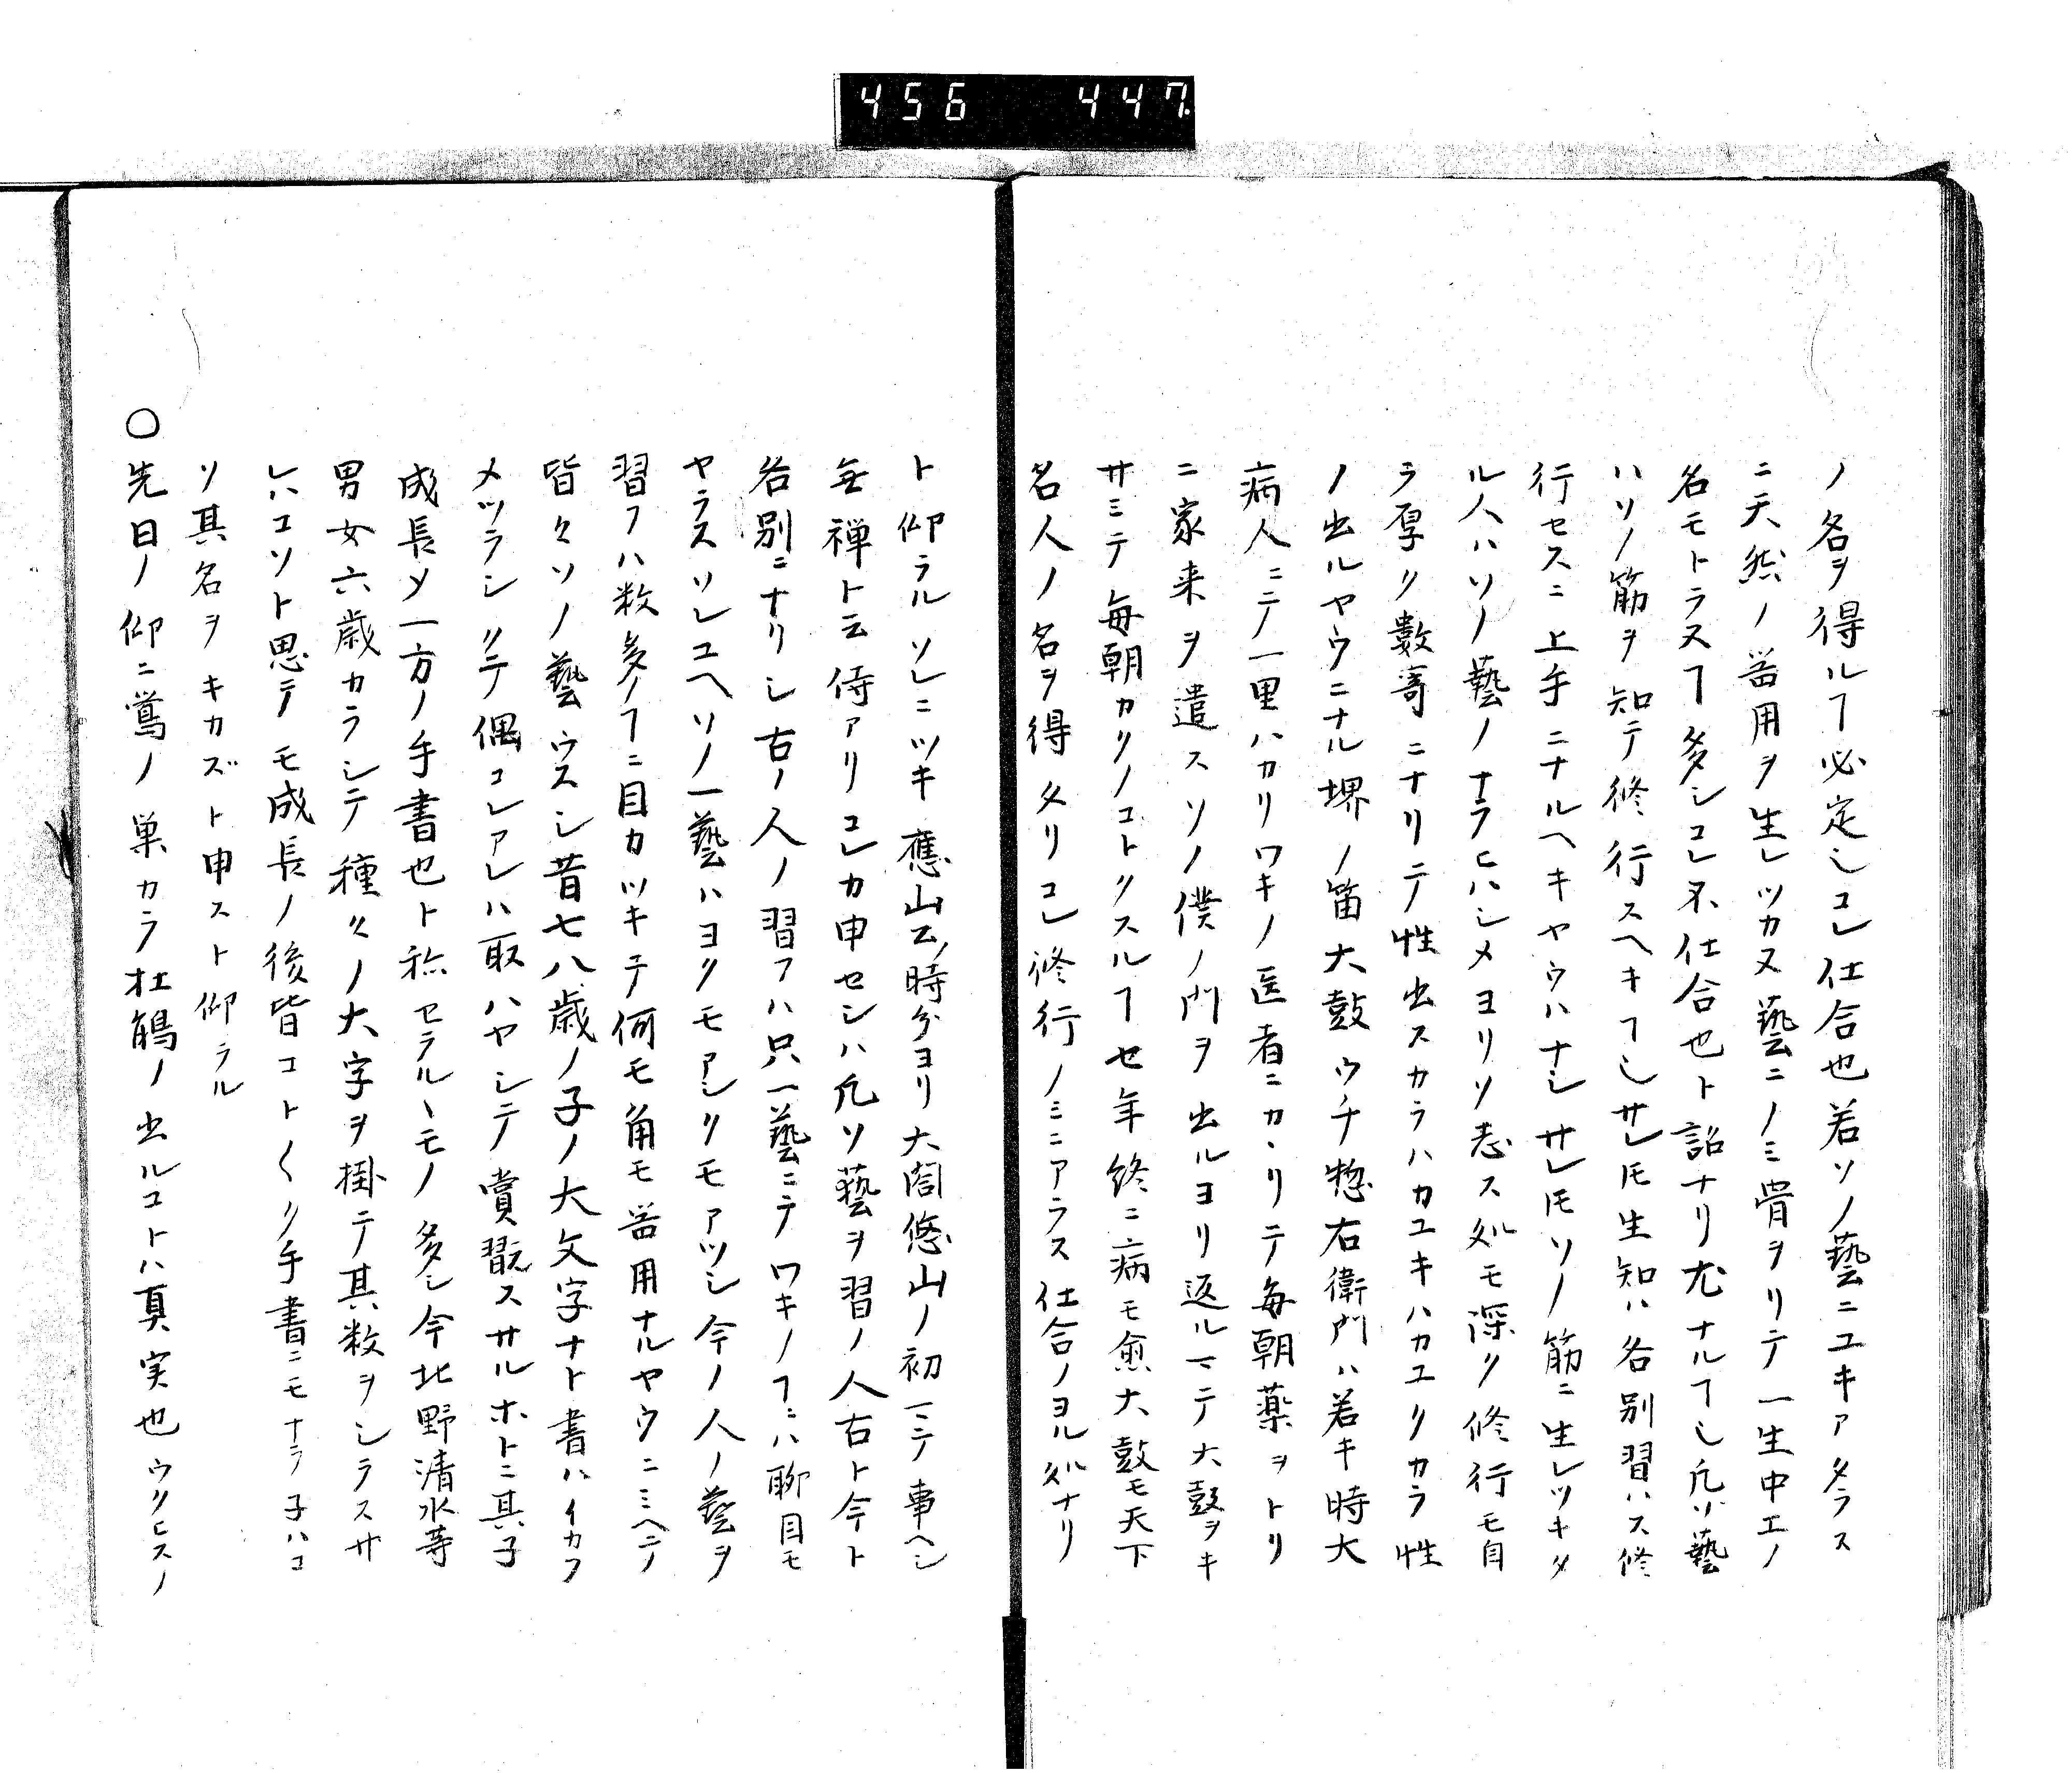 456 447
ノ名ヲ得ルヿ必定シコレ仕合也若ソノ藝ニユキアタラス
ニ天然ノ器用ヲ生レツカヌ藝ニノミ骨ヲリテ一生中エノ
名モトラヌヿ多シコレ不仕合也ト詔ナリ尤ナルヿ也凡ソ藝
ハソノ筋ヲ知テ修行スヘキヿ也サレ𪜈生知ハ各別習ハス修
行セスニ上手ニナルヘキヤウハナシサレ𪜈ソノ筋ニ生レツキタ
ル人ハソノ藝ノナラヒハシメヨリソ志ス処モ深ク修行モ自
ラ厚ク數寄ニナリテ性出スカラハカユキハカユクカラ性
ノ出ルヤウニナル堺ノ笛大鼓ウチ惣右衛門ハ若キ時大
病人ニテ一里ハカリワキノ医者ニカヽリテ毎朝薬ヲトリ
ニ家来ヲ遣スソノ僕ノ門ヲ出ルヨリ返ルマテ大鼓ヲキ
サミテ毎朝カクノコトクスルヿ七年終ニ病モ愈大鼓モ天下
名人ノ名ヲ得タリコレ修行ノミニアラス仕合ノヨル処ナリ
ト仰ラルソレニツキ應山公ノ時分ヨリ大閤悠山ノ初マテ事ヘシ
無禅ト云侍アリコレカ申セシハ凡ソ藝ヲ習ノ人古ト今ト
各別ニナリシ古ノ人ノ習フハ只一藝ニテワキノヿニハ聊目モ
ヤラスソレユヘソノ一藝ハヨクモアシクモアツシ今ノ人ノ藝ヲ
習フハ数多ノヿニ目カツキテ何モ角モ器用ナルヤウニミヘテ
皆々ソノ藝ウスシ昔七八歳ノ子ノ大文字ナト書ハイカフ
メツラシクテ偶コレアレハ取ハヤシテ賞翫スサルホトニ其子
成長メ一方ノ手書也ト称セラルヽモノ多シ今北野清水等
男女六歳カラシテ種々ノ大字ヲ掛テ其数ヲシラスサ
レハコソト思テモ成長ノ後皆コト〱ク手書ニモナラ子ハコ
ソ其名ヲキカズト申スト仰ラル
〇先日ノ仰ニ鶯ノ巣カラ杜鵑ノ出ルコトハ真実也ウクヒスノ